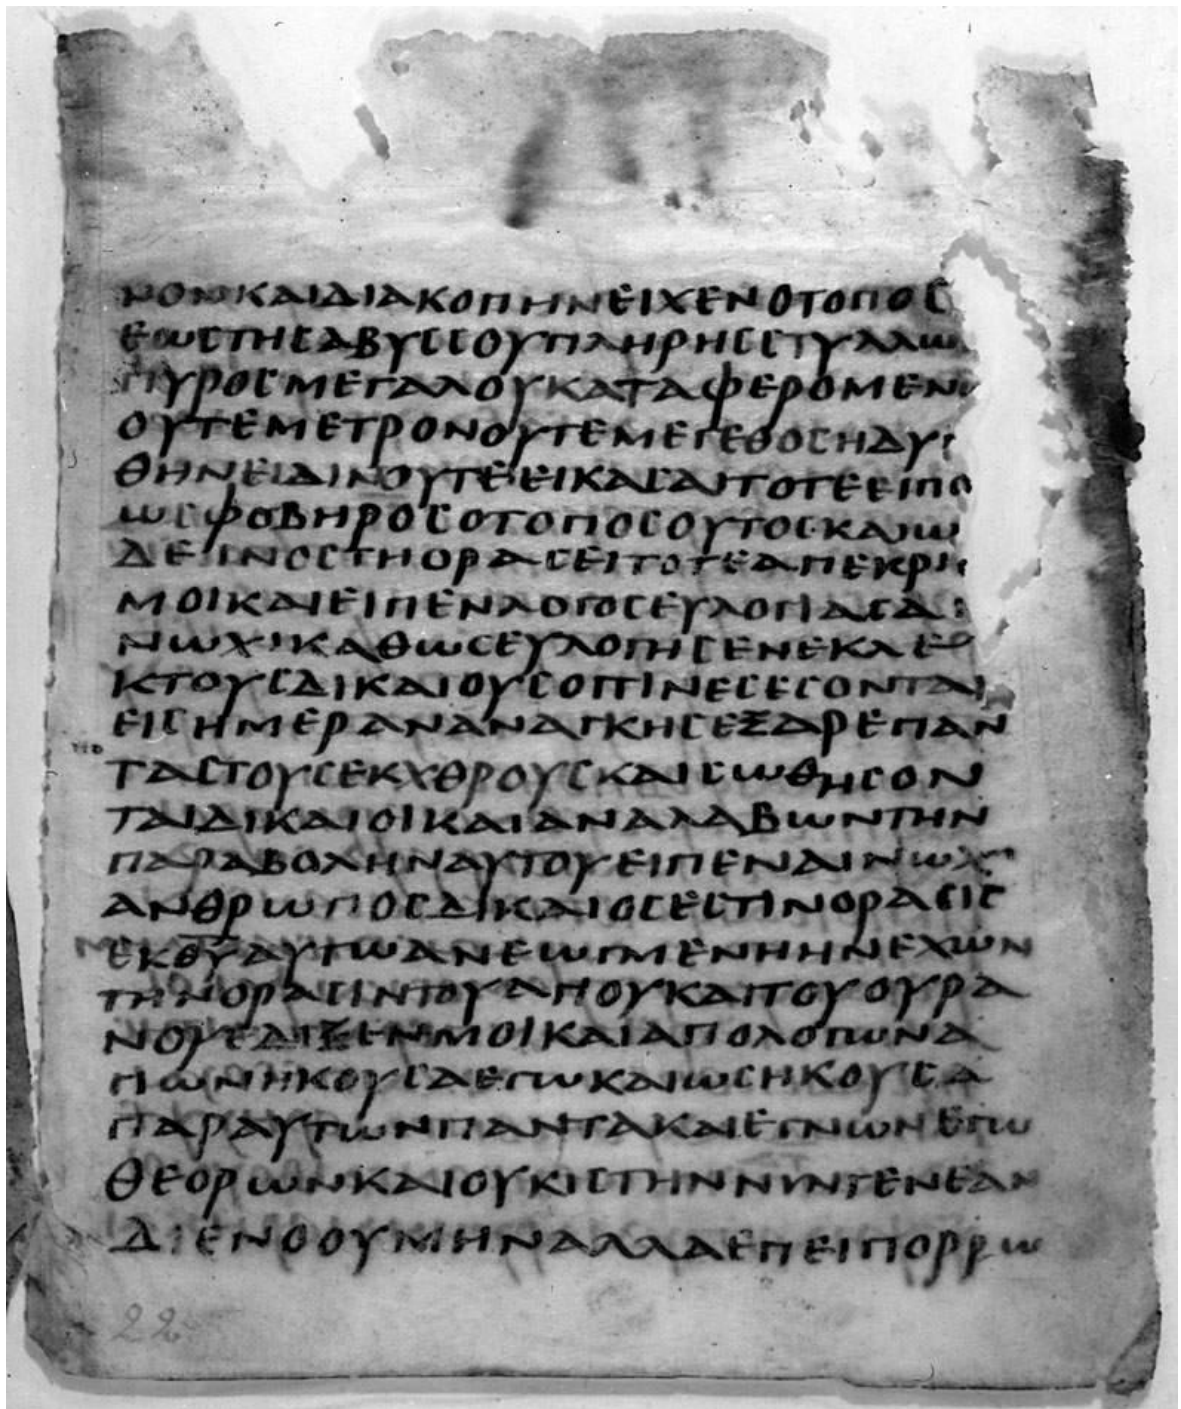 ΝΟΝΚΑΙΔΙΑΚΟΠΗΝΕΙΧΕΝΟΤΟΠΟС
ΕΩСΤΗСΑΒΥССΟΥΠΛΗΡΗССΤΥΛΛΩ
ΠΥΡΟСΜΕΓΑΛΟΥΚΑΤΑΦΕΡΟΜΕΝ
ΟΥΤΕΜΕΤΡΟΝΟΥΤΕΜΕΓΕΘΟСΗΔΥ
ΘΗΝΕΙΔΙΝΟΥΤΕΕΙΚΑСΑΙΤΟΤΕΕΙΠΟ
ΩСΦΟΒΗΡΟСΟΤΟΠΟСΟΥΤΟСΚΑΙΩ
ΔΕΙΝΟСΤΗΟΡΑСΕΙΤΟΤΕΑΠΕΚΡΙ
ΜΟΙΚΑΙΕΙΠΕΝΛΟΓΟСΕΥΛΟΓΙΑСΑ
ΝΩΧΙΚΑΘΩСΕΥΛΟΓΗСΕΝΕΚΛΕ
ΚΤΟΥСΔΙΚΑΙΟΥСΟΙΤΙΝΕСΕСΟΝΤΑΙ
ΕΙСΗΜΕΡΑΝΑΝΑΓΚΗСΕΞΑΡΕΠΑΝ
ΤΑСΤΟΥСΕΚΧΘΡΟΥСΚΑΙСΩΘΗСΟΝ
ΤΑΙΔΙΚΑΙΟΙΚΑΙΑΝΑΛΑΒΩΝΤΗΝ
ΠΑΡΑΒΟΛΗΝΑΥΤΟΥΕΙΠΕΝΑΙΝΩΧ
ΑΝΘΡΩΠΟСΔΙΚΑΙΟСΕСΤΙΝΟΡΑСΙС
ΕΚΘΥΑΥΤΩΑΝΕΩΓΜΕΝΗΗΝΕΧΩΝ
ΤΗΝΟΡΑСΙΝΤΟΥΑΓΙΟΥΚΑΙΤΟΥΟΥΡΑ
ΝΟΥΕΔΙΞΕΝΜΟΙΚΑΙΑΓΙΟΛΟΓΩΝΑ
ΓΙΩΝΗΚΟΥСΑΕΓΩΚΑΙΩСΗΚΟΥСΑ
ΠΑΡΑΥΤΩΝΠΑΝΤΑΚΑΙΕΓΝΩΝΕΓΩ
ΘΕΟΡΩΝΚΑΙΟΥΚΙСΤΗΝΝΥΝΓΕΝΕΑΝ
ΔΙΕΝΟΟΥΜΗΝΑΛΛΑΕΠΕΙΠΟΡΡΩ
22